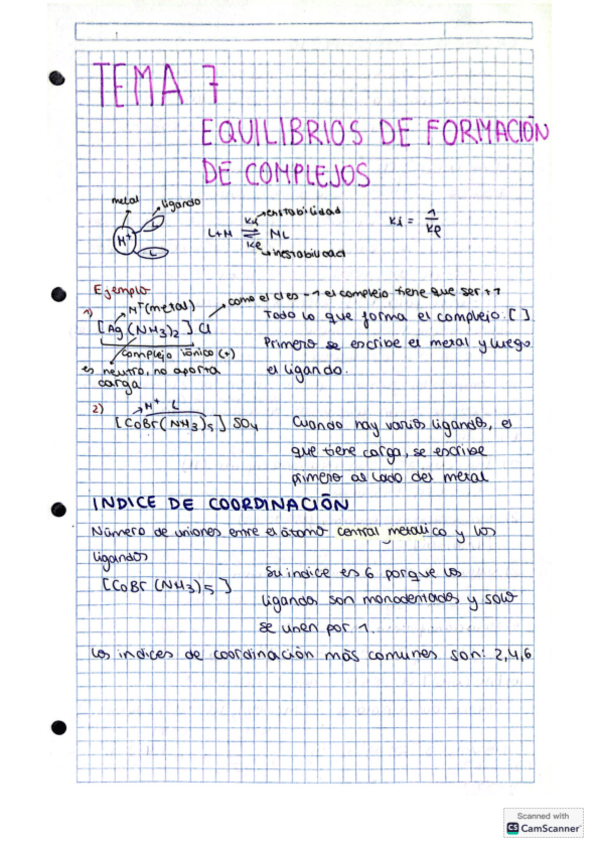 TEMA 7
EQUILIBRIOS DE FORMACIÓN
DE COMPLEJOS
metal
ligando
M+
L
L+M ⇌ ML
Kf → estabilidad
Ki = 1/Kf
inestabilidad
Ejemplo
1)
M+(metal)
como el Cl es -1 el complejo tiene que ser +1
[Ag(NH3)2]Cl
Todo lo que forma el complejo: [ ].
complejo iónico (+)
Primero se escribe el metal y luego
el ligando.
es neutro, no aporta
carga
2)
M+ L
[CoBr(NH3)5] SO4
Cuando hay varios ligandos, el
que tiene carga, se escribe
primero al lado del metal
INDICE DE COORDINACIÓN
Número de uniones entre el átomo central metálico y los
ligandos
[CoBr(NH3)5]
Su indice es 6 porque los
ligandos son monodentados y solo
se unen por 1.
Los indices de coordinación más comunes son: 2,4,6
Scanned with
CS CamScanner